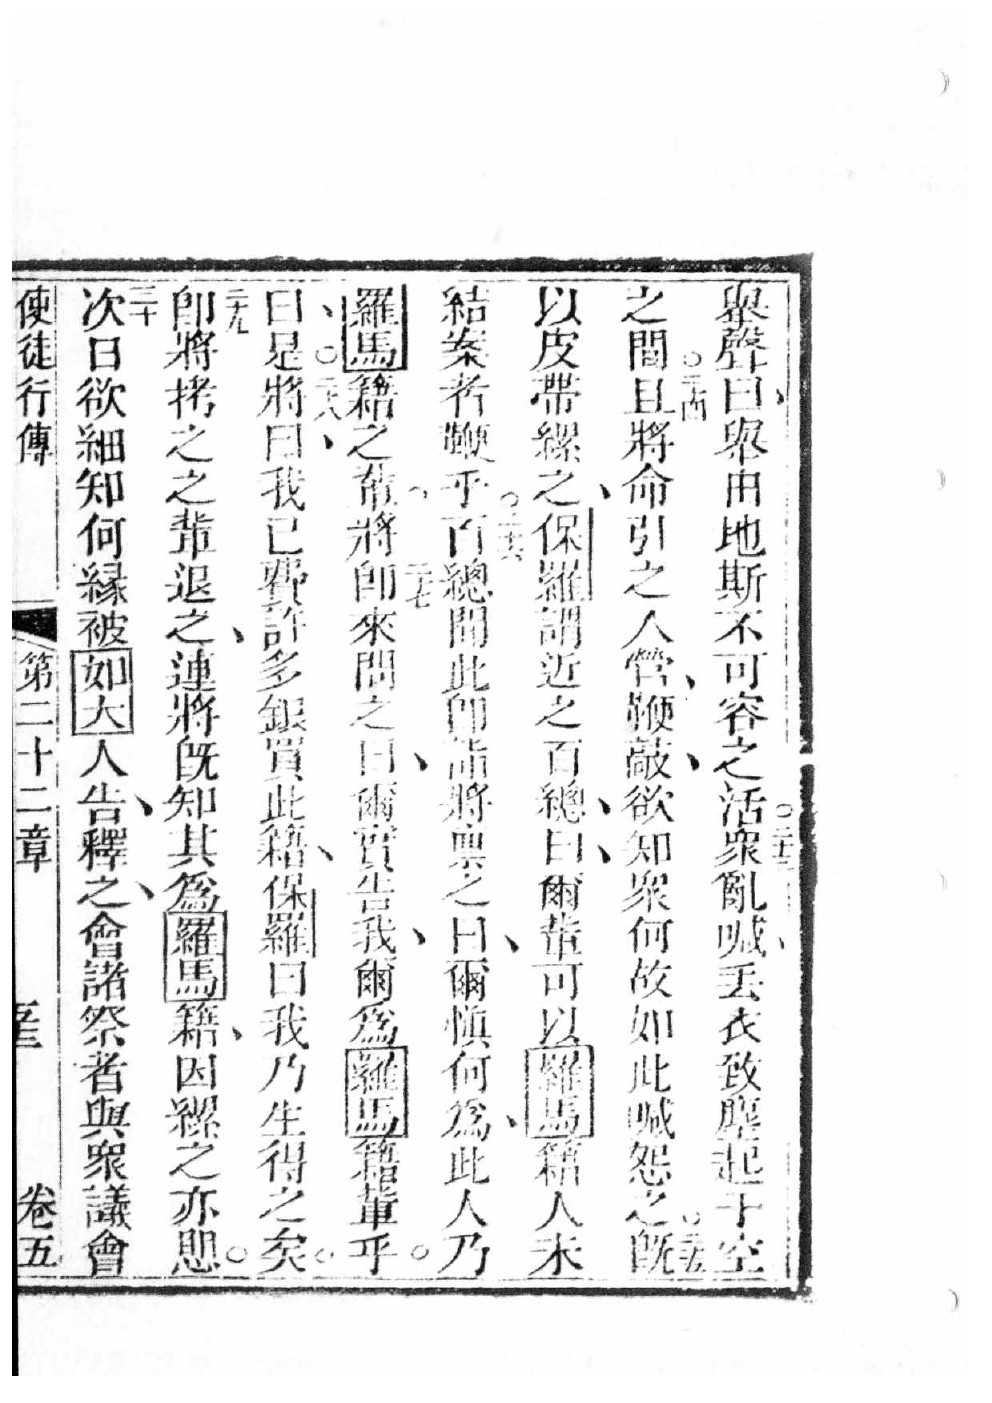 舉聲曰、舉由地斯不可容之活。二十三衆亂喊、丟衣致塵起于空
之間。二十四且將命引之人營、鞭敲、欲知衆何故如此喊怨之。二十五既
以皮帶縲之、保羅謂近之百總、曰、爾輩可以羅馬籍人未
結案者鞭乎。二十六百總聞此卽詣將禀之曰、爾慎何爲、此人乃
羅馬籍之輩、二十七將卽來問之曰、爾實告我、爾爲羅馬籍輩乎。
曰、是。二十八將曰、我已費許多銀買此籍、保羅曰我乃生得之矣。
二十九卽將拷之之輩退之、連將旣知其爲羅馬籍、因縲之亦思。
三十次日欲細知何緣被如大人告、釋之、會諸祭者與衆議會
使徒行傳 第二十二章 卷五